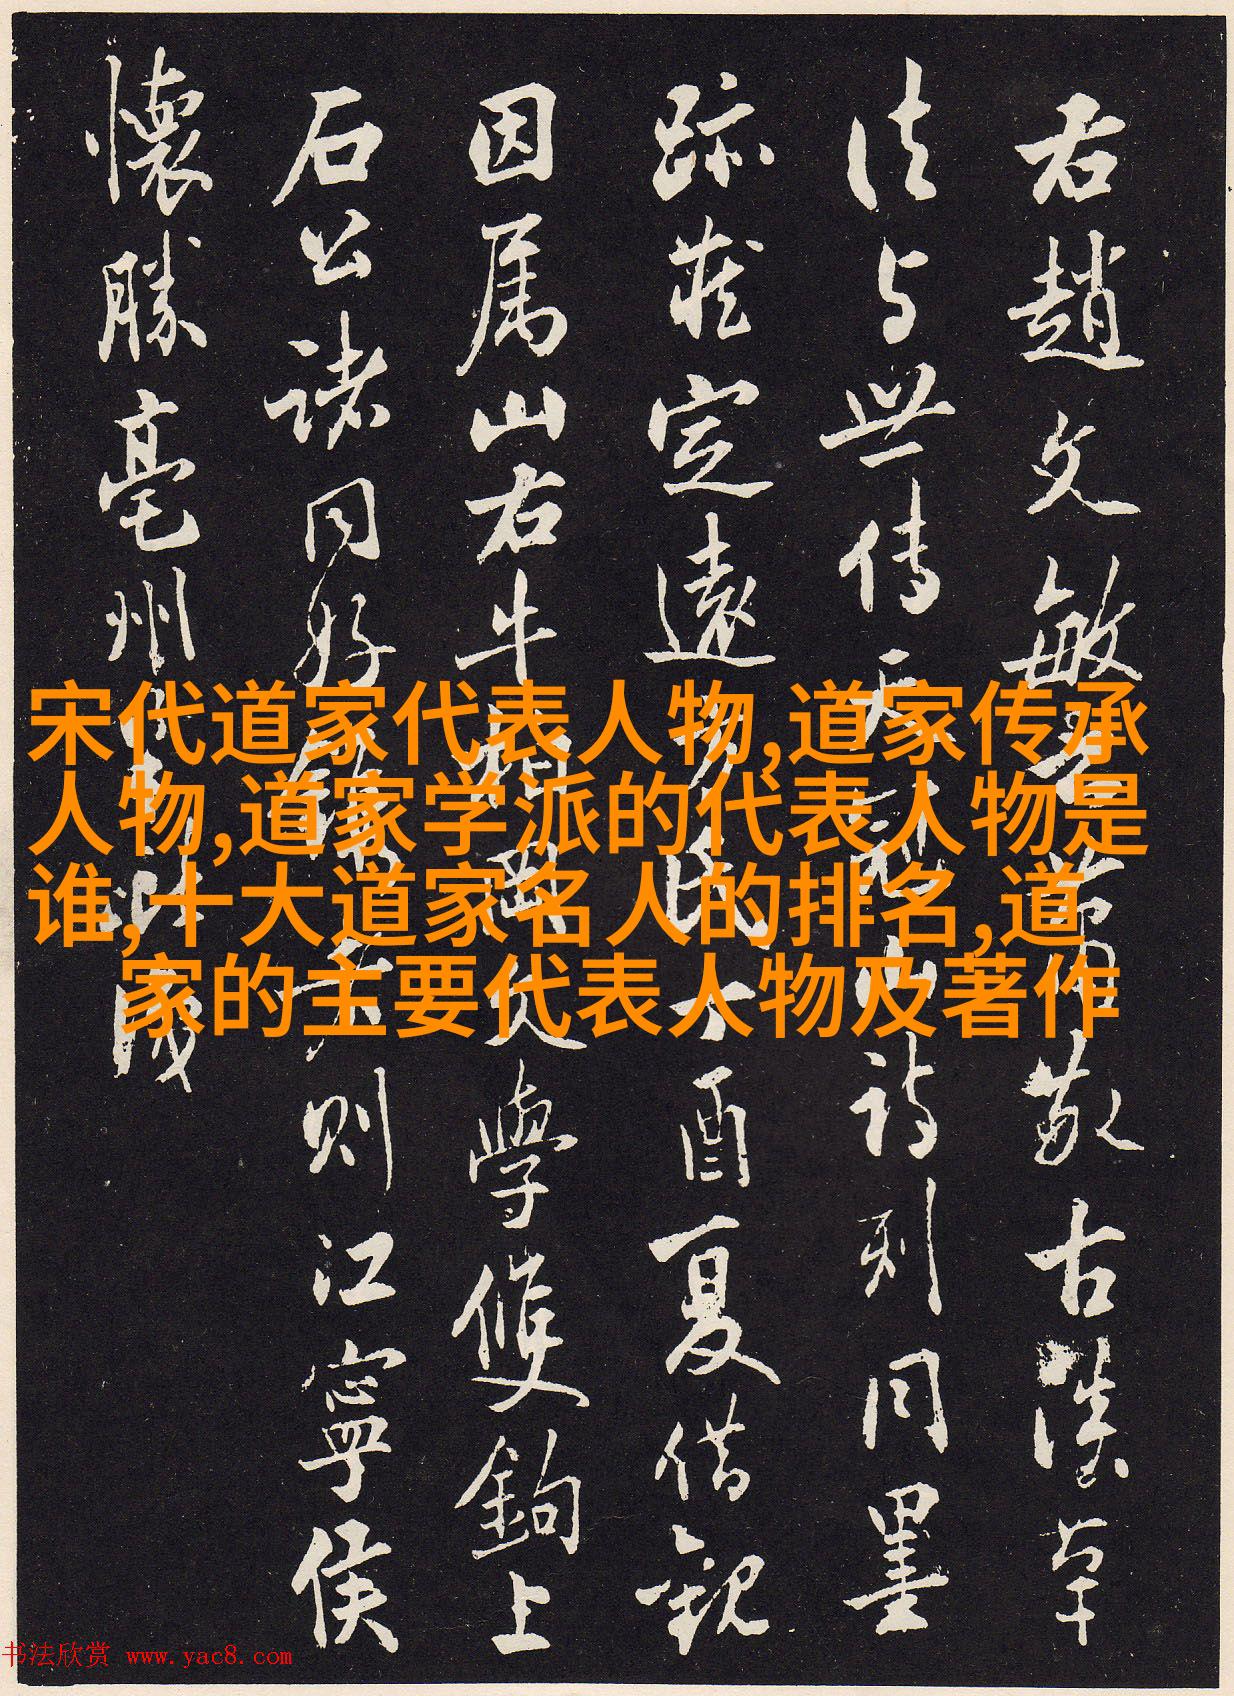 右趙文敏
敬古漢草
法与世傳
詩刻同墨
跡藏定遠
酉夏借觀
因属山右牛
學候鉤上
石公諸同好
則江寧侯
懷勝亳州
宋代道家代表人物,道家传承
人物,道家学派的代表人物是
谁,十大道家名人的排名,道
家的主要代表人物及著作
书法欣赏 www.yac8.com